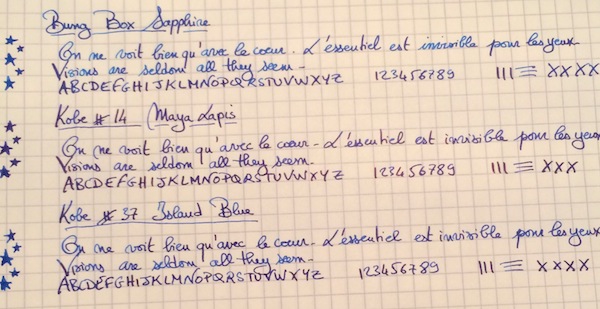 Bung Box Sapphire
On ne voit bien qu'avec le cœur. L'essentiel est invisible pour les yeux
Visions are seldom all they seem -
ABCDEFGHIJKLMNOPQRSTUVWXYZ 123456789 III ≡ XXXX
Kobe #14 Maya Lapis
On ne voit bien qu'avec le cœur - L'essentiel est invisible pour les yeux
Visions are seldom all they seem -
ABCDEFGHIJKLMNOPQRSTUVWXYZ 123456789 III ≡ XXX
Kobe #37 Island Blue
On ne voit bien qu'avec le cœur - L'essentiel est invisible pour les yeux
Visions are seldom all they seem -
ABCDEFGHIJKLMNOPQRSTUVWXYZ 123456789 III ≡ XXXX